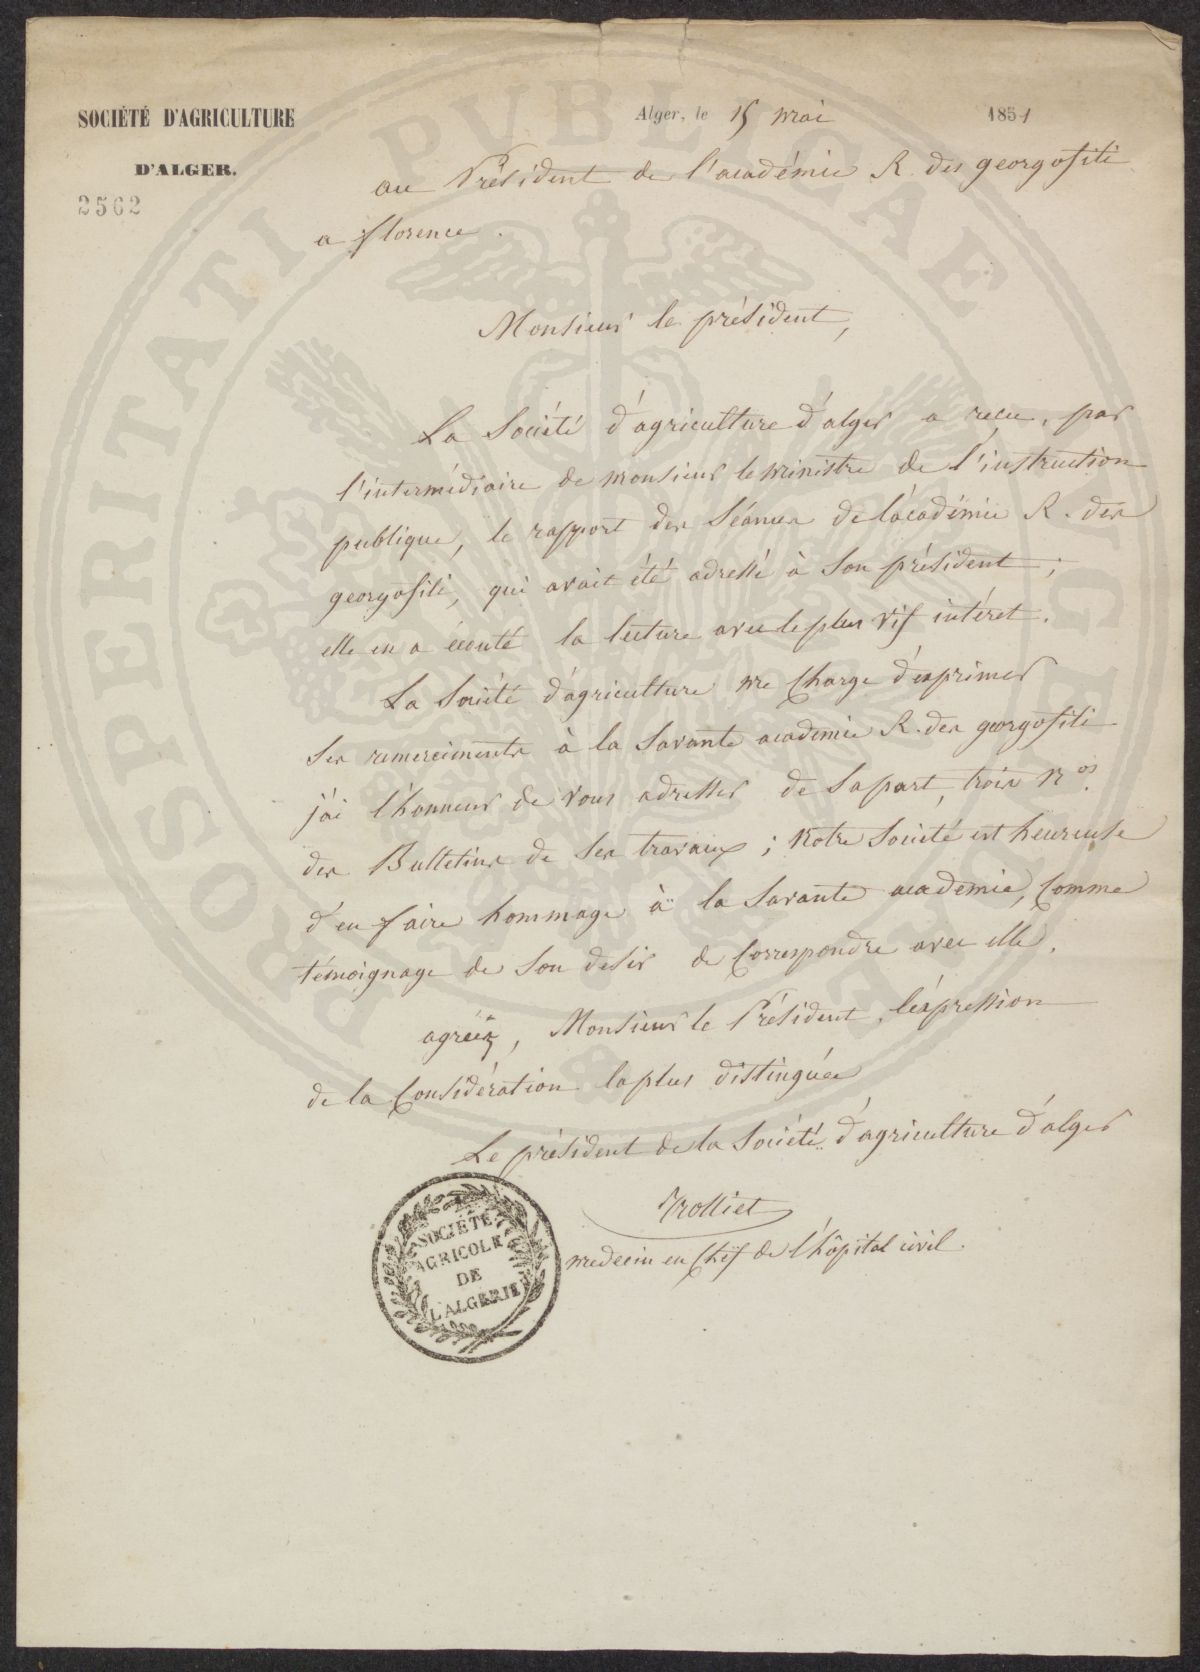 SOCIÉTÉ D'AGRICULTURE
D'ALGER.
2562
Alger, le 15 mai 1851
au Président de l'académie R. des georgofili
a florence.
Monsieur le président,
La Société d'agriculture d'alger a recu, par
l'intermédiaire de monsieur le ministre de l'instruction
publique, le rapport des Séances de l'académie R. des
georgofili, qui avait été adressé à Son président ;
elle en a écouté la lecture avec le plus vif intéret.
La Société d'agriculture me Charge d'exprimer
Ses remerciments à la Savante academie R. des georgofili
j'ai l'honneur de vous adresser de Sa part, trois Nos.
des Bulletins de Ses travaux ; notre Société est heureuse
d'en faire hommage à la Savante academie, Comme
témoignage de Son desir de Correspondre avec elle.
agréez, Monsieur le Président, l'expression
de la Considération la plus distinguée
Le président de la Société d'agriculture d'alger
Trolliet
medecin en Chef de l'hôpital civil.
SOCIÉTÉ
AGRICOLE
DE
L'ALGERIE
PROSPERITATI PVBLICAE AVGENDAE